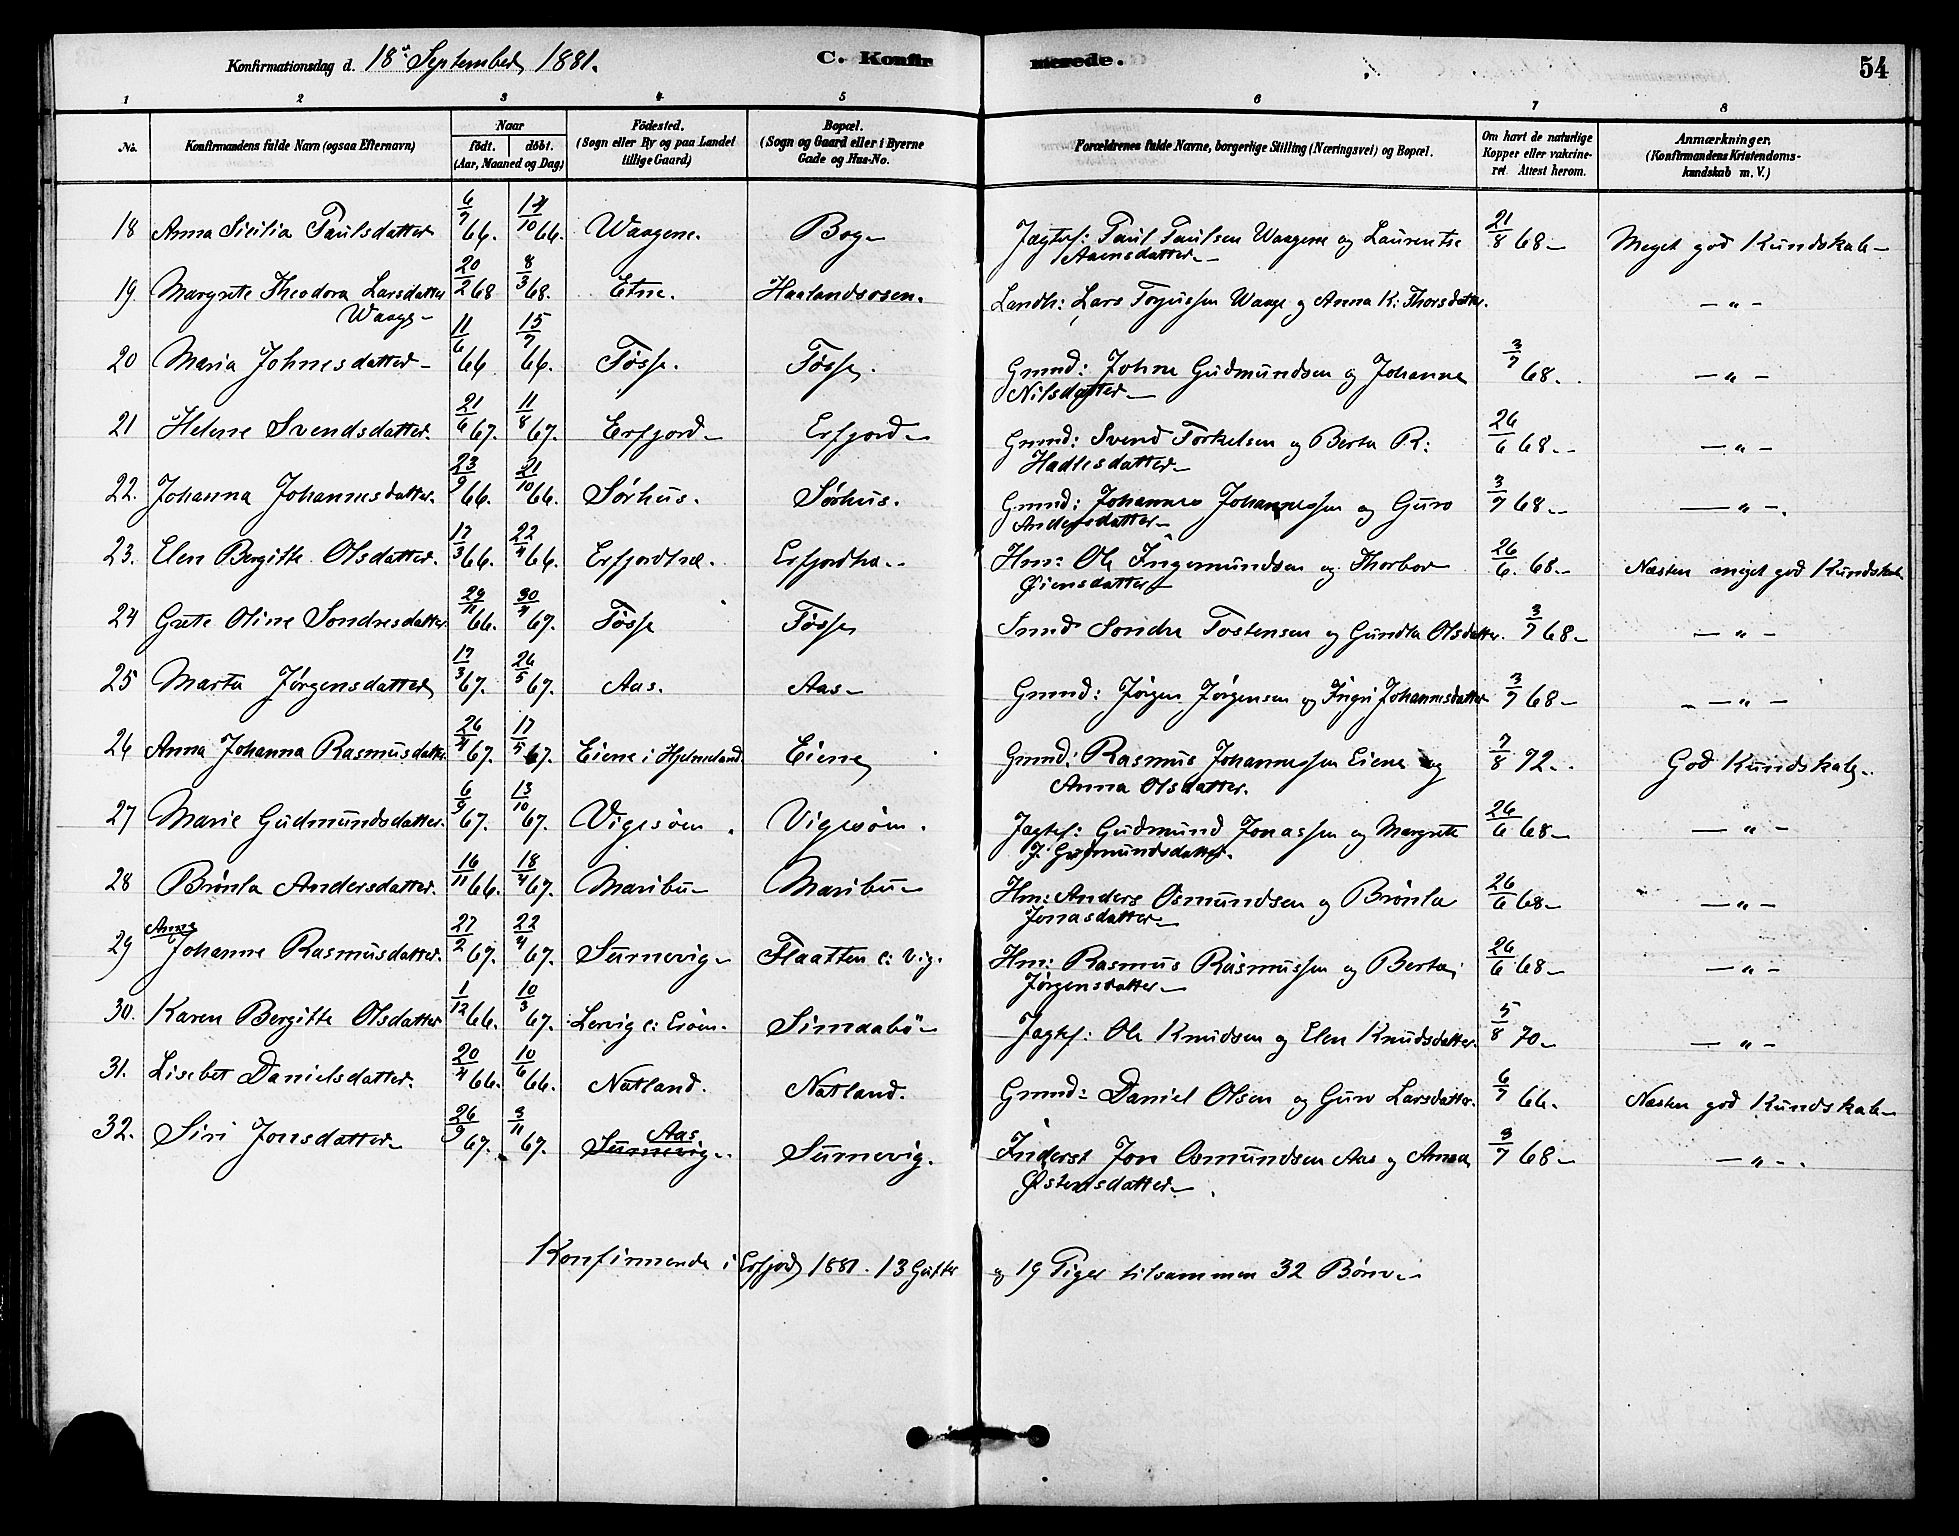 Konfirmationsdag d. 18de September 1881. C. Konfirmerede. 54
1 2 3 4 5 6 7 8
No. Konfirmandens fulde Navn (ogsaa Efternavn) Naar födt. döbt. (Aar, Maaned og Dag) Födested. (Sogn eller By og paa Landet tillige Gaard) Bopæl. (Sogn og Gaard eller i Byerne Gade og Hus-No. Forældrenes fulde Navne, borgerlige Stilling (Næringsvei) og Bopæl. Om havt de naturlige Kopper eller vakcineret. Attest herom. Anmærkninger. (Konfirmandens Kristendomskundskab m. V.)
18 Anna Sicilia Paulsdatter 6/7 66. 14/10 66. Waagene. Bog Jægtef: Paul Paulsen Waagene og Laurentse 21/8 68 Meget god Kundskab
Aaensdatter
19 Margrete Theodora Larsdatter 20/2 68 8/3 68. Etne. Haalandsosen. Landh: Lars Torgussen Waage og Anna K: Thorsdatter. — " —
Waage
20 Maria Johnesdatter 11/6 66 15/7 66. Tøsse. Tøsse. Grmd: Johne Gudmundsen og Johanne 3/7 68. — " —
Nilsdatter
21 Helene Svendsdatter. 21/6 67. 11/8 67. Erfjord Erfjord Grmd: Svend Torkelsen og Berta R: 26/6 68. — " —
Hadlesdatter
22. Johanna Johannesdatter. 23/9 66. 21/10 66. Sørhus. Sørhus. Grmd: Johannes Johannessen og Guro 3/7 68 — " —
Andersdatter
23. Elen Bergitte Olsdatter. 17/3 66. 22/4 66. Erfjordhæ. Erfjordhæ. Hm: Ole Ingemundsen og Thorbor 26/6. 68. Næsten meget god Kundskab
Øiensdatter
24 Grete Oline Sondresdatter 29/11 66. 30/4 67. Tøsse Tøsse Smd Sondre Tostensen og Gundla Olsdatter. 3/7 68 — " —
25 Marta Jørgensdatter 17/3 67. 26/5 67. Aas. Aas Grmd: Jørgen Jørgensen og Ingri Johannesdatter 3/7 68 — " —
26 Anna Johanna Rasmusdatter 26/4 67. 17/5 67. Eiene i Hjelmeland. Eiene Grmd: Rasmus Johannessen Eiene og 7/8 72. God Kundskab
Anna Olsdatter.
27 Marie Gudmundsdatter. 6/9 67. 13/10 67. Vigesøen. Vigesøen. Jægtef: Gudmund Jonassen og Margrete 26/6 68 — " —
J. Gudmundsdatter.
28 Brønla Andersdatter. 16/11 66. 18/4 67. Maribu Maribu Hm: Anders Osmundsen og Brønla 26/6 68 — " —
Jonasdatter
29 Anna Johanne Rasmusdatter. 27/2 67. 22/4 67. Sumevig Flaatten e: Vig. Hm: Rasmus Rasmussen og Berta 26/6 68 — " —
Jørgensdatter
30. Karen Bergitte Olsdatter 1/12 66. 10/3 67. Lervig e: Erøen. Simaabö Jægtef: Ole Knudsen og Elen Knudsdatter. 5/8 70 — " —
31. Lisebet Danielsdatter. 20/4 66. 10/6 66. Natland. Natland. Grmd: Daniel Olsen og Guro Larsdatter. 6/7 66. Næsten god Kundskab
32. Siri Jonsdatter 26/9 67. 3/11 67. Sumevig Aas Sumevig. Inderst Jon Osmundsen Aas og Anna 3/7 68 — " —
Østensdatter
Konfirmerede i Erfjord 1881. 13 Gutter og 19 Piger tilsammen 32 Børn.